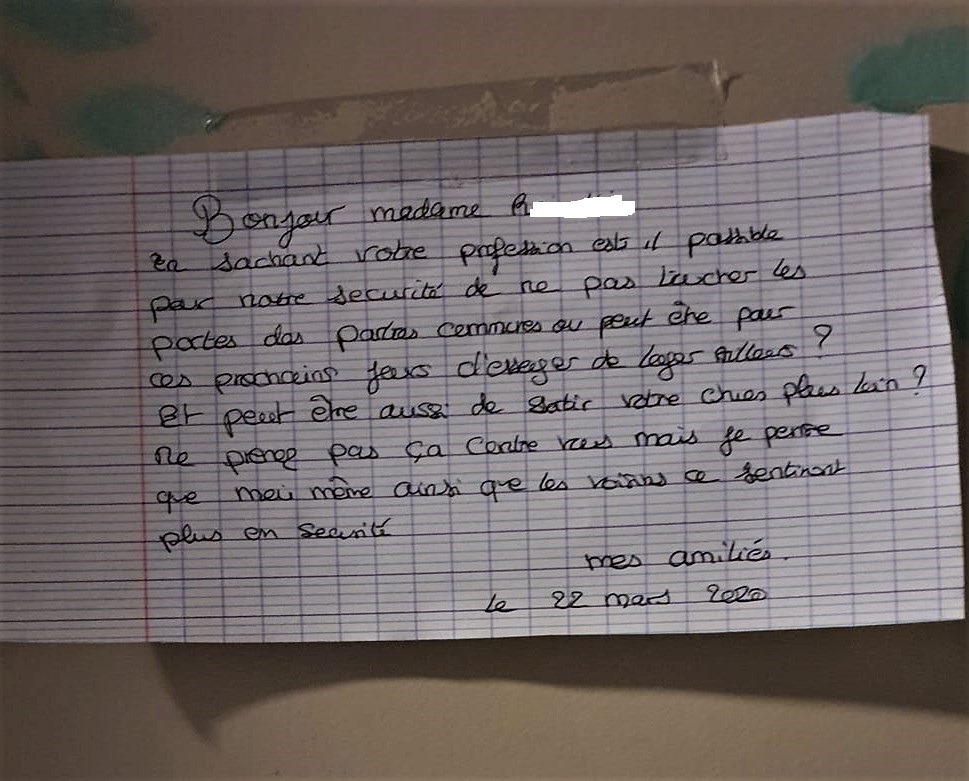 Bonjour madame R
en sachant votre profession est il possible
pour notre securité de ne pas toucher les
portes des parties commcres ou peut être pour
ces prochains jours d'essayer de loger ailleurs ?
Et peut être aussi de sortir votre chien plus loin ?
ne prenez pas ça contre vous mais je pense
que moi même ainsi que les voisins ce sentiront
plus en securité
mes amitiés.
le 22 mars 2020